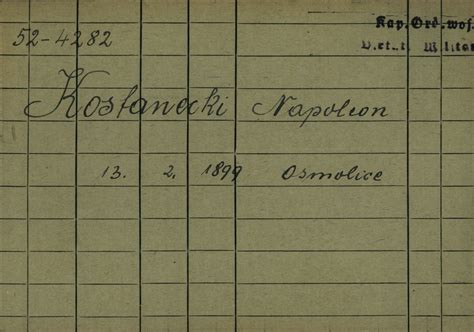 52-4282
Kap. Ord. woj.
Virtut. Militar
Kostanecki Napoleon
13. 2. 1899 Osmolice